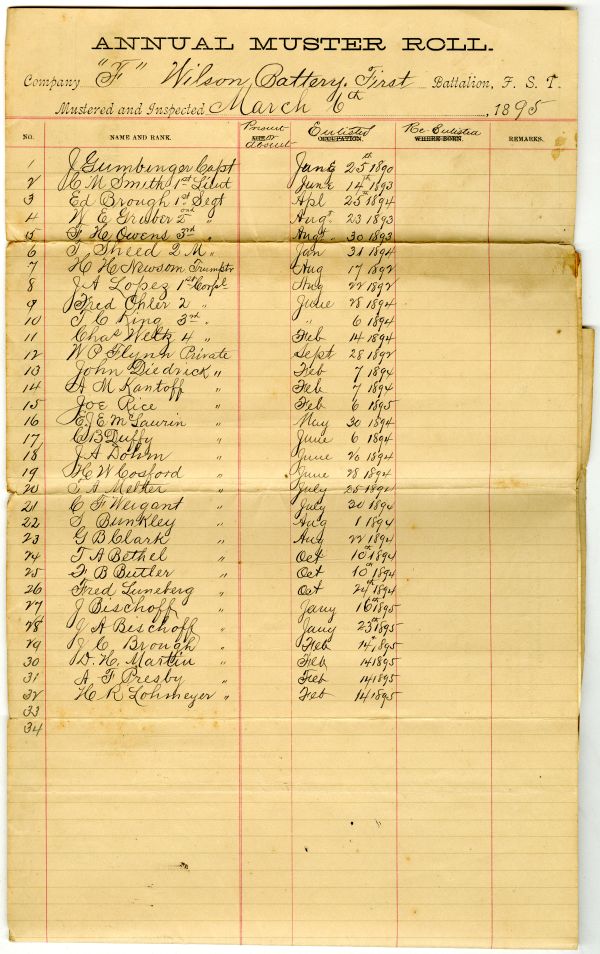 ANNUAL MUSTER ROLL.
Company "F" Wilson Battery. First Battalion, F. S. T.
Mustered and Inspected March 6th, 1895
NO. NAME AND RANK. Present or Absent Enlisted OCCUPATION. Re-Enlisted WHERE BORN. REMARKS.
1 J Gumbinger Capt June 25th 1890
2 C M Smith 1st Lieut June 14th 1893
3 Ed Brough 1st Segt Apl 25th 1894
4 W E Gruber 2nd " Augt. 23 1893
5 F H Owens 3rd " Augt " 30 1893
6 T Sheed 2 M " Jan 31 1894
7 H H Newsom Trumptr Aug 17 1892
8 J A Lopez 1st Corpl Aug 22 1892
9 Fred Ohler 2 " June 28 1894
10 T C King 3rd " " 6 1894
11 Chas Weltz 4 " Feb 14 1894
12 W P Flynn Private Sept 28 1892
13 John Diedrick " Feb 7 1894
14 A M Kantoff " Feb 7 1894
15 Joe Rice " Feb 6 1895
16 E J E McLaurin " May 30 1894
17 C B Duffy " June 6 1894
18 J A Dohm " June 20 1894
19 H W Cosford " June 28 1894
20 T A Melther " July 25 1894
21 C F Weigant " July 30 1894
22 S Bunkley " Aug 1 1894
23 G B Clark " Aug 22 1894
24 T A Bethel " Oct 10th 1894
25 F B Butler " Oct 10th 1894
26 Fred Luneberg " Oct 24th 1894
27 J Bischoff " Jany 16th 1895
28 J A Bischoff " Jany 23th 1895
29 J C Brough " Feb 14 1895
30 D. H. Martin " Feb 14 1895
31 A F Presby " Feb 14 1895
32 H R Lohmeyer " Feb 14 1895
33
34